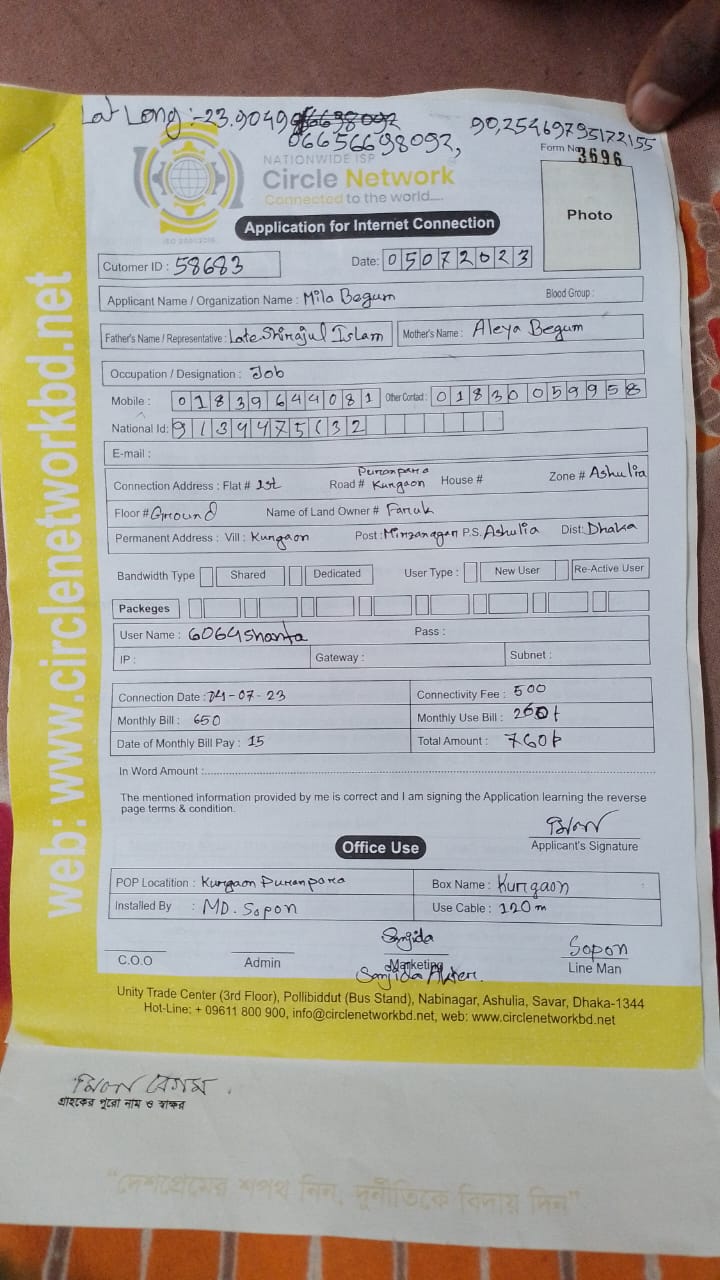 Lat Long :- 23.9049
06656698092, 90,25469795172155
Form No. 3696
NATIONWIDE ISP
Circle Network
Connected to the world....
ISO 9001:2015
Application for Internet Connection
Photo
Cutomer ID : 58683
Date: 05072023
Applicant Name / Organization Name : Mila Begum
Blood Group :
Father's Name / Representative : Late Shirajul Islam
Mother's Name : Aleya Begum
Occupation / Designation : Job
Mobile : 01839644081 Other Contact : 01830059958
National Id: 9134475132
E-mail :
Connection Address : Flat # 1st Road # Puranpara Kungaon House # Zone # Ashulia
Floor # Ground Name of Land Owner # Faruk
Permanent Address : Vill : Kungaon Post : Mirzanagar P.S. Ashulia Dist: Dhaka
Bandwidth Type Shared Dedicated User Type : New User Re-Active User
Packeges
User Name : 6064shanta Pass :
IP : Gateway : Subnet :
Connection Date : 04-07-23 Connectivity Fee : 500
Monthly Bill : 650 Monthly Use Bill : 260
Date of Monthly Bill Pay : 15 Total Amount : 760
In Word Amount :
The mentioned information provided by me is correct and I am signing the Application learning the reverse
page terms & condition.
Applicant's Signature
Office Use
POP Locatition : Kurgaon Puranpara Box Name : Kurigaon
Installed By : MD. Sopon Use Cable : 120 m
Sanjida
Sopon
C.O.O Admin Marketing Line Man
Sanjida Akter.
Unity Trade Center (3rd Floor), Pollibiddut (Bus Stand), Nabinagar, Ashulia, Savar, Dhaka-1344
Hot-Line: + 09611 800 900, info@circlenetworkbd.net, web: www.circlenetworkbd.net
web: www.circlenetworkbd.net
বেগম
গ্রাহকের পুরো নাম ও স্বাক্ষর
"দেশপ্রেমের শপথ নিন, দুর্নীতিকে বিদায় দিন"